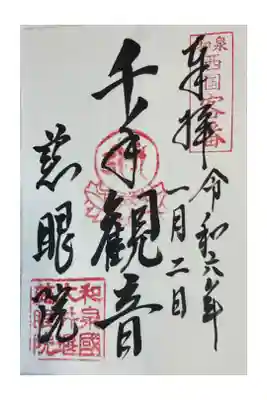 和泉
西国客番
奉拝
令和六年
一月二日
千手観音
慈眼院
和泉國